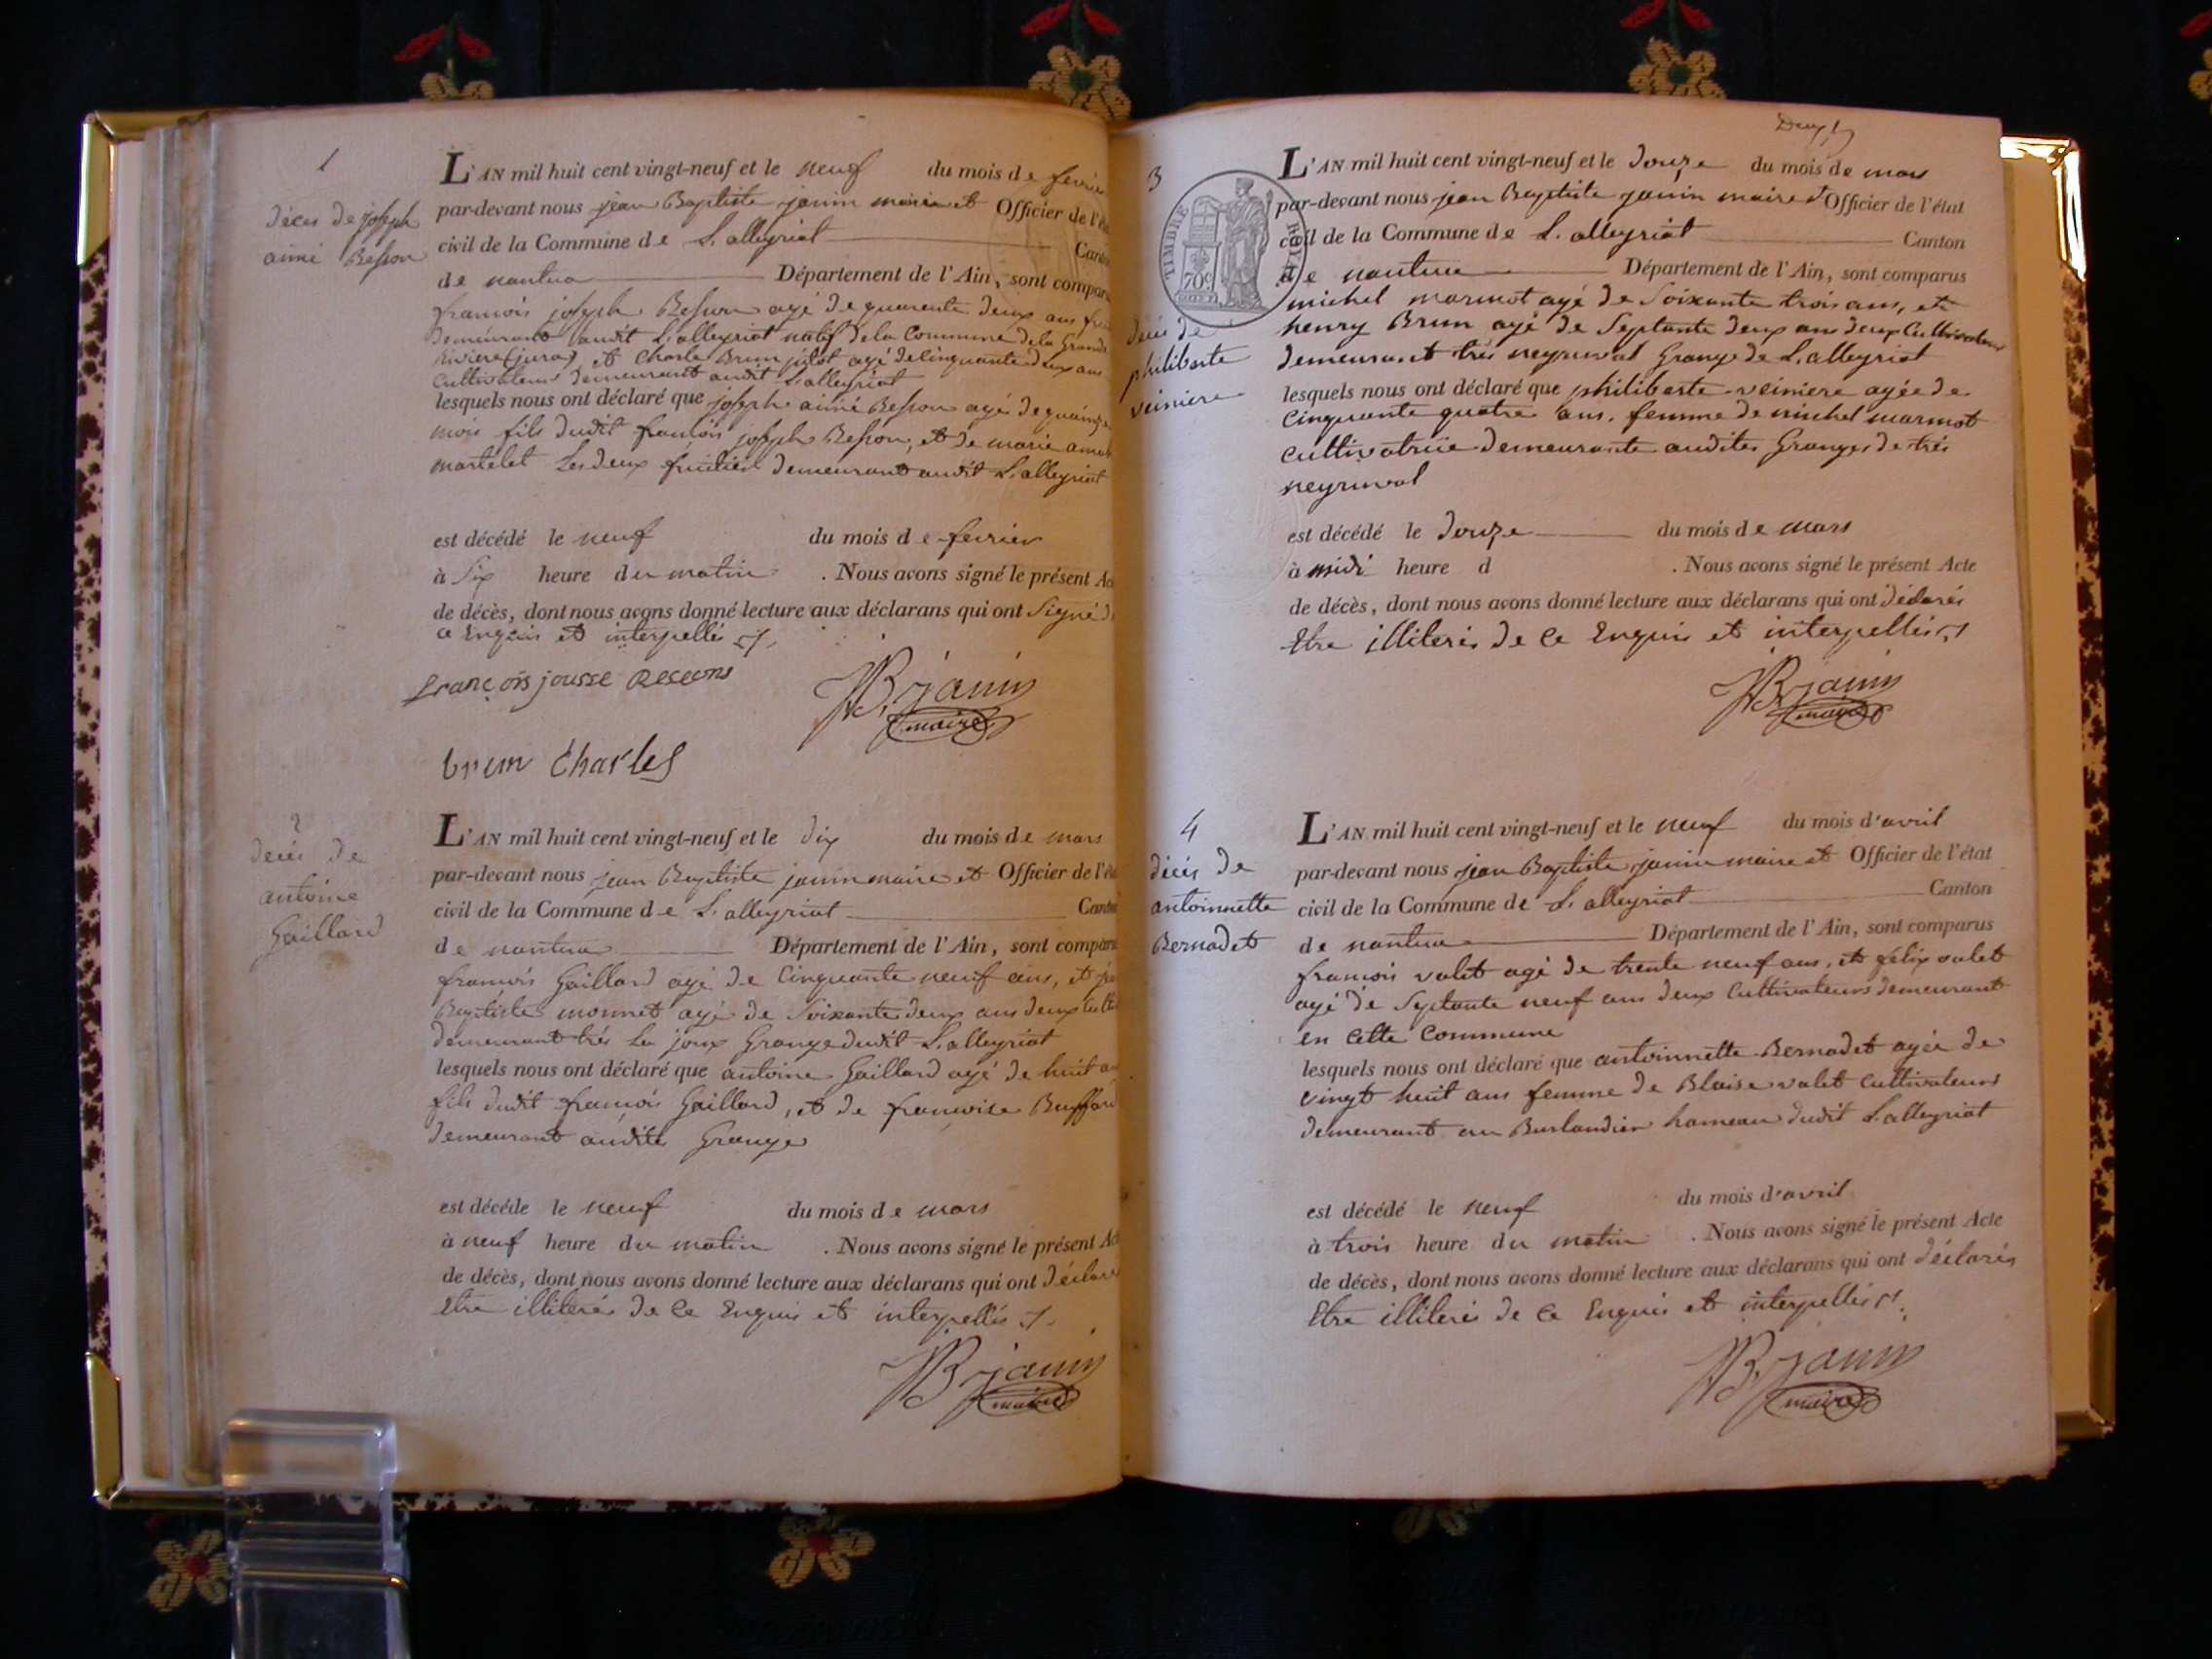 1
L'AN mil huit cent vingt-neuf et le neuf du mois de fevrier
par-devant nous jean Baptiste janin maire et Officier de l'état
décès de joseph
aimé Besson
civil de la Commune de L. alleyriat Canton
de nantua Département de l'Ain, sont comparus
francois joseph Besson agé de quarente deux ans
demeurant audit L'alleyriat natif de la Commune de la Grande
Riviere (jura) et Charle Brun agé de Cinquante deux ans
Cultivateur demeurant audit L'alleyriat
lesquels nous ont déclaré que joseph aimé Besson agé de quinze
mois fils dudit francois joseph Besson, et de marie
martelet Les deux fruitiers demeurant audit L. alleyriat
est décédé le neuf du mois de fevrier
à Six heure du matin . Nous avons signé le présent Acte
de décès, dont nous avons donné lecture aux déclarans qui ont Signé de
ce Enquis et interpellés
françois jousse
JB janin
maire
brun Charles
2
décés de
antoine
Gaillard
L'AN mil huit cent vingt-neuf et le dix du mois de mars
par-devant nous jean Baptiste janin maire et Officier de l'état
civil de la Commune de L. alleyriat Canton
de nantua Département de l'Ain, sont comparus
francois Gaillard agé de Cinquante neuf ans, et jean
Baptiste monnet agé de Soixante deux ans deux
demeurant trés La joux Grange dudit L. alleyriat
lesquels nous ont déclaré que antoine Gaillard agé de huit
fils dudit francois Gaillard, et de francoise Buffard
demeurant audite Grange
est décédé le neuf du mois de mars
à neuf heure du matin . Nous avons signé le présent Acte
de décès, dont nous avons donné lecture aux déclarans qui ont déclarés
Etre illiterés de Ce Enquis et interpellés
JB janin
maire
3
TIMBRE ROYAL
70c
décés de
philiberte
veiniere
L'AN mil huit cent vingt-neuf et le douze du mois de mars
par-devant nous jean Baptiste janin maire et Officier de l'état
civil de la Commune de L. alleyriat Canton
de nantua Département de l'Ain, sont comparus
michel marmot agé de Soixante trois ans, et
henry Brun agé de Septante deux ans deux Cultivateurs
demeurant trés neyruval Grange de L. alleyriat
lesquels nous ont déclaré que philiberte veiniere agée de
Cinquante quatre ans, femme de michel marmot
Cultivatrice demeurante audites Granges de trés
neyruval
est décédé le douze du mois de mars
à midi heure d . Nous avons signé le présent Acte
de décès, dont nous avons donné lecture aux déclarans qui ont déclarés
Etre illiterés de Ce Enquis et interpellés
JB janin
maire
4
décés de
antoinnette
Bernadet
L'AN mil huit cent vingt-neuf et le neuf du mois d'avril
par-devant nous jean Baptiste janin maire et Officier de l'état
civil de la Commune de L. alleyriat Canton
de nantua Département de l'Ain, sont comparus
francois valet agé de trente neuf ans, et félix valet
agé de Septante neuf ans deux Cultivateurs demeurant
en Cette Commune
lesquels nous ont déclaré que antoinnette Bernadet agée de
vingt huit ans femme de Blaise valet Cultivateurs
demeurant au Burlandier hameau dudit L. alleyriat
est décédé le neuf du mois d'avril
à trois heure du matin . Nous avons signé le présent Acte
de décès, dont nous avons donné lecture aux déclarans qui ont déclarés
Etre illiterés de Ce Enquis et interpellés
JB janin
maire